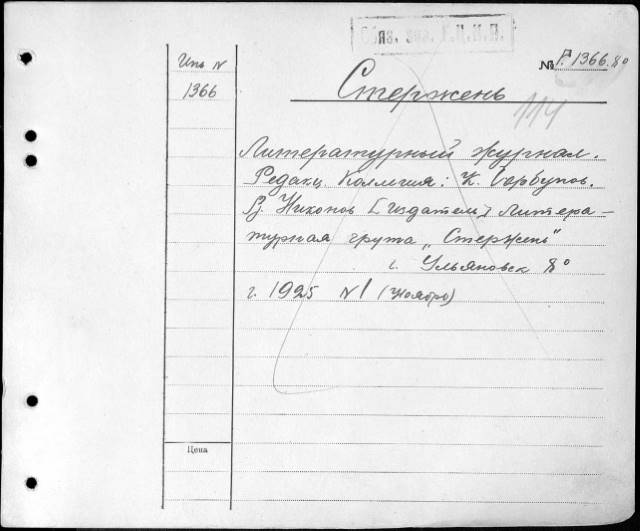 Обяз. экз. Г.Ц.К.П.
Инв N
№ Г. 1366. 8°
1366
Стержень
114
Литературный журнал.
Редакц Коллегия: К. Горбунов.
В. Никонов [издатель] Литера–
турная группа „Стержень"
г. Ульяновск 8°
г. 1925 N 1 (Ноябрь)
Цена